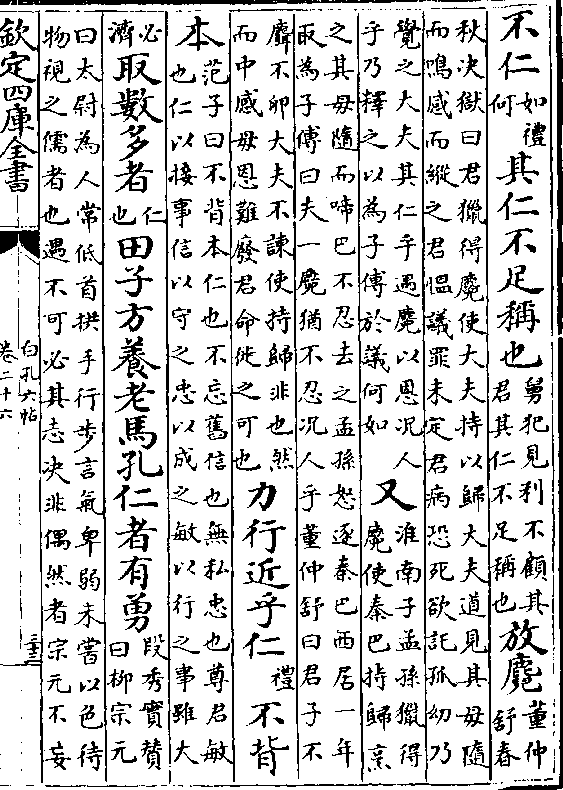 不仁如禮何其仁不足稱也舅犯見利不顧其君其仁不足稱也放麑董仲舒春
秋决獄曰君獵得麑使大夫持以歸大夫道見其母隨
而鳴感而縱之君愠議罪未定君病恐死欲託孤幼乃
覺之大夫其仁乎遇麑以恩况人乎乃釋之以為子傅於議何如又淮南子孟孫獵得麑使秦巴持歸烹
之其母隨而啼巴不忍去之孟孫怒逐秦巴西居一年
取為子傅曰夫一麑猶不忍况人乎董仲舒曰君子不
麛不卵大夫不諫使持歸非也然而中感母恩難廢君命徙之可也力行近乎仁禮不背
本范子曰不背本仁也不忘舊信也無私忠也尊君敏也仁以接事信以守之忠以成之敏以行之事雖大
必濟取數多者仁也田子方養老馬孔仁者有勇段秀實贊曰柳宗元
曰太尉為人常低首拱手行步言氣卑弱未嘗以色待
物視之儒者也遇不可必其志决非偶然者宗元不妄
欽定四庫全書
白孔六帖
卷二十六